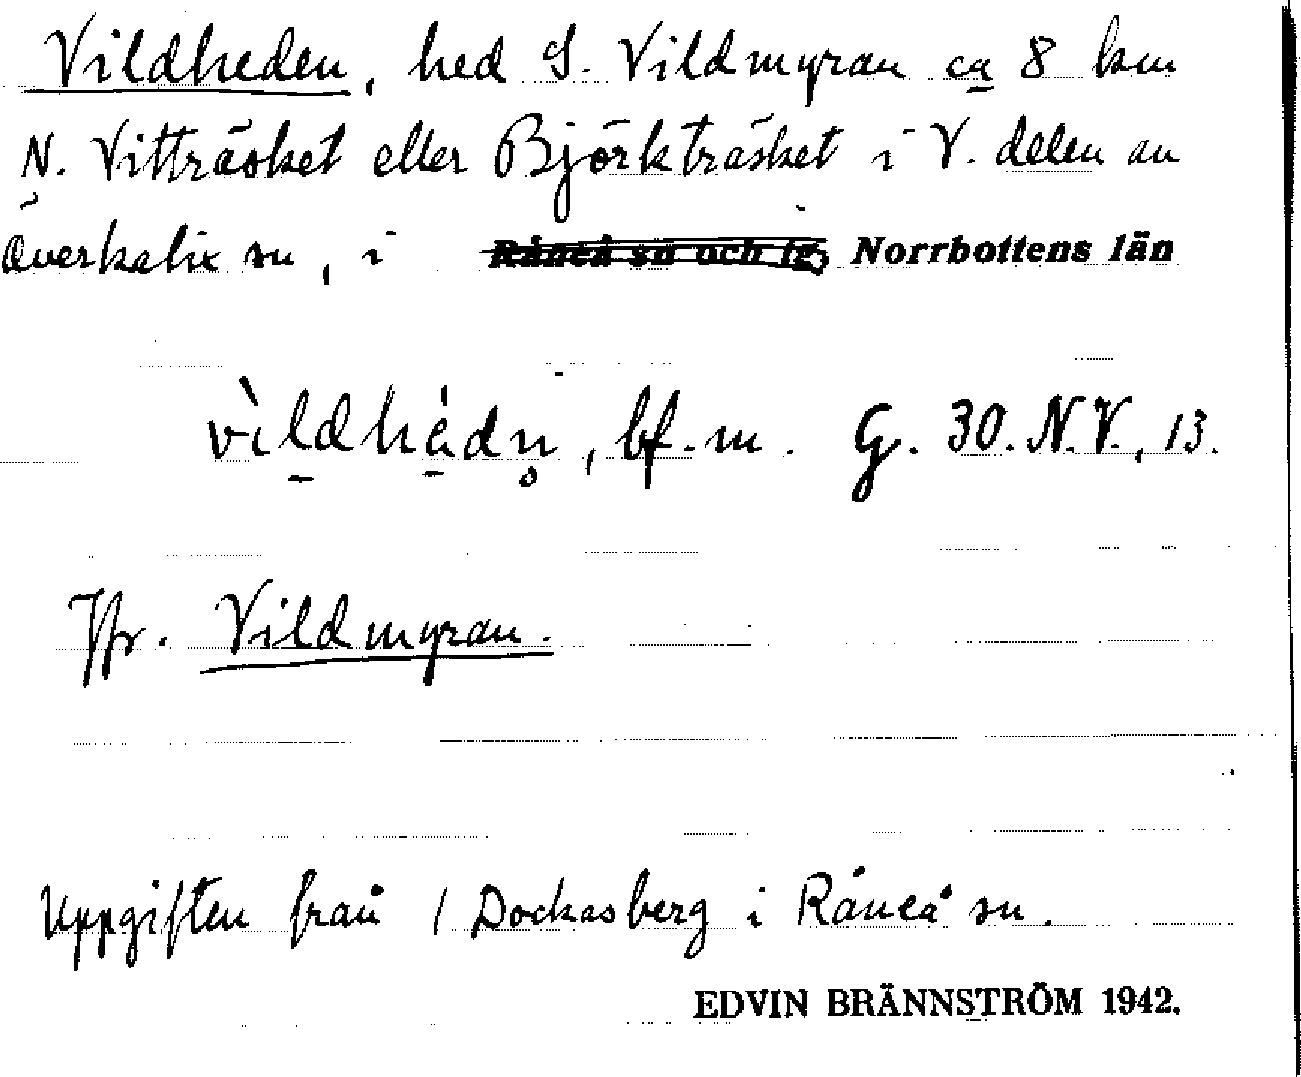 Vildheden, hed S. Vildmyran ca 8 km
N. Vitträsket eller Björkträsket i V. delen av
Överkalix sn, i Råneå sn och tg, Norrbottens län
vìldhèdn̥, bf. m. G. 30. N.V., 13.
Jfr. Vildmyran.
Uppgiften från / Dockasberg i Råneå sn.
EDVIN BRÄNNSTRÖM 1942.